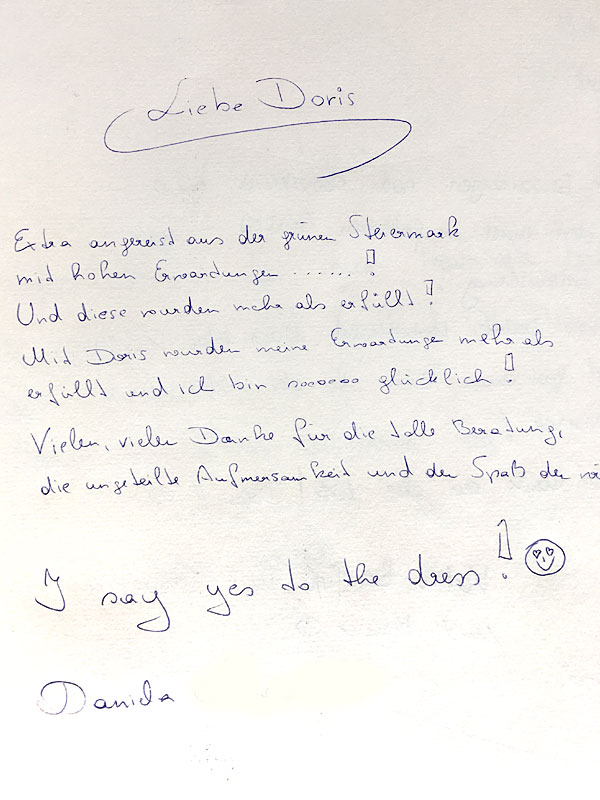 Liebe Doris
Extra angereist aus der grünen Steiermark
mit hohen Erwartungen ......!
Und diese wurden mehr als erfüllt!
Mit Doris wurden meine Erwartunge mehr als
erfüllt und ich bin sooooooo glücklich!
Vielen, vielen Danke für die tolle Beratung,
die ungeteilte Aufmersamkeit und den Spaß den
I say yes to the dress!
Daniela